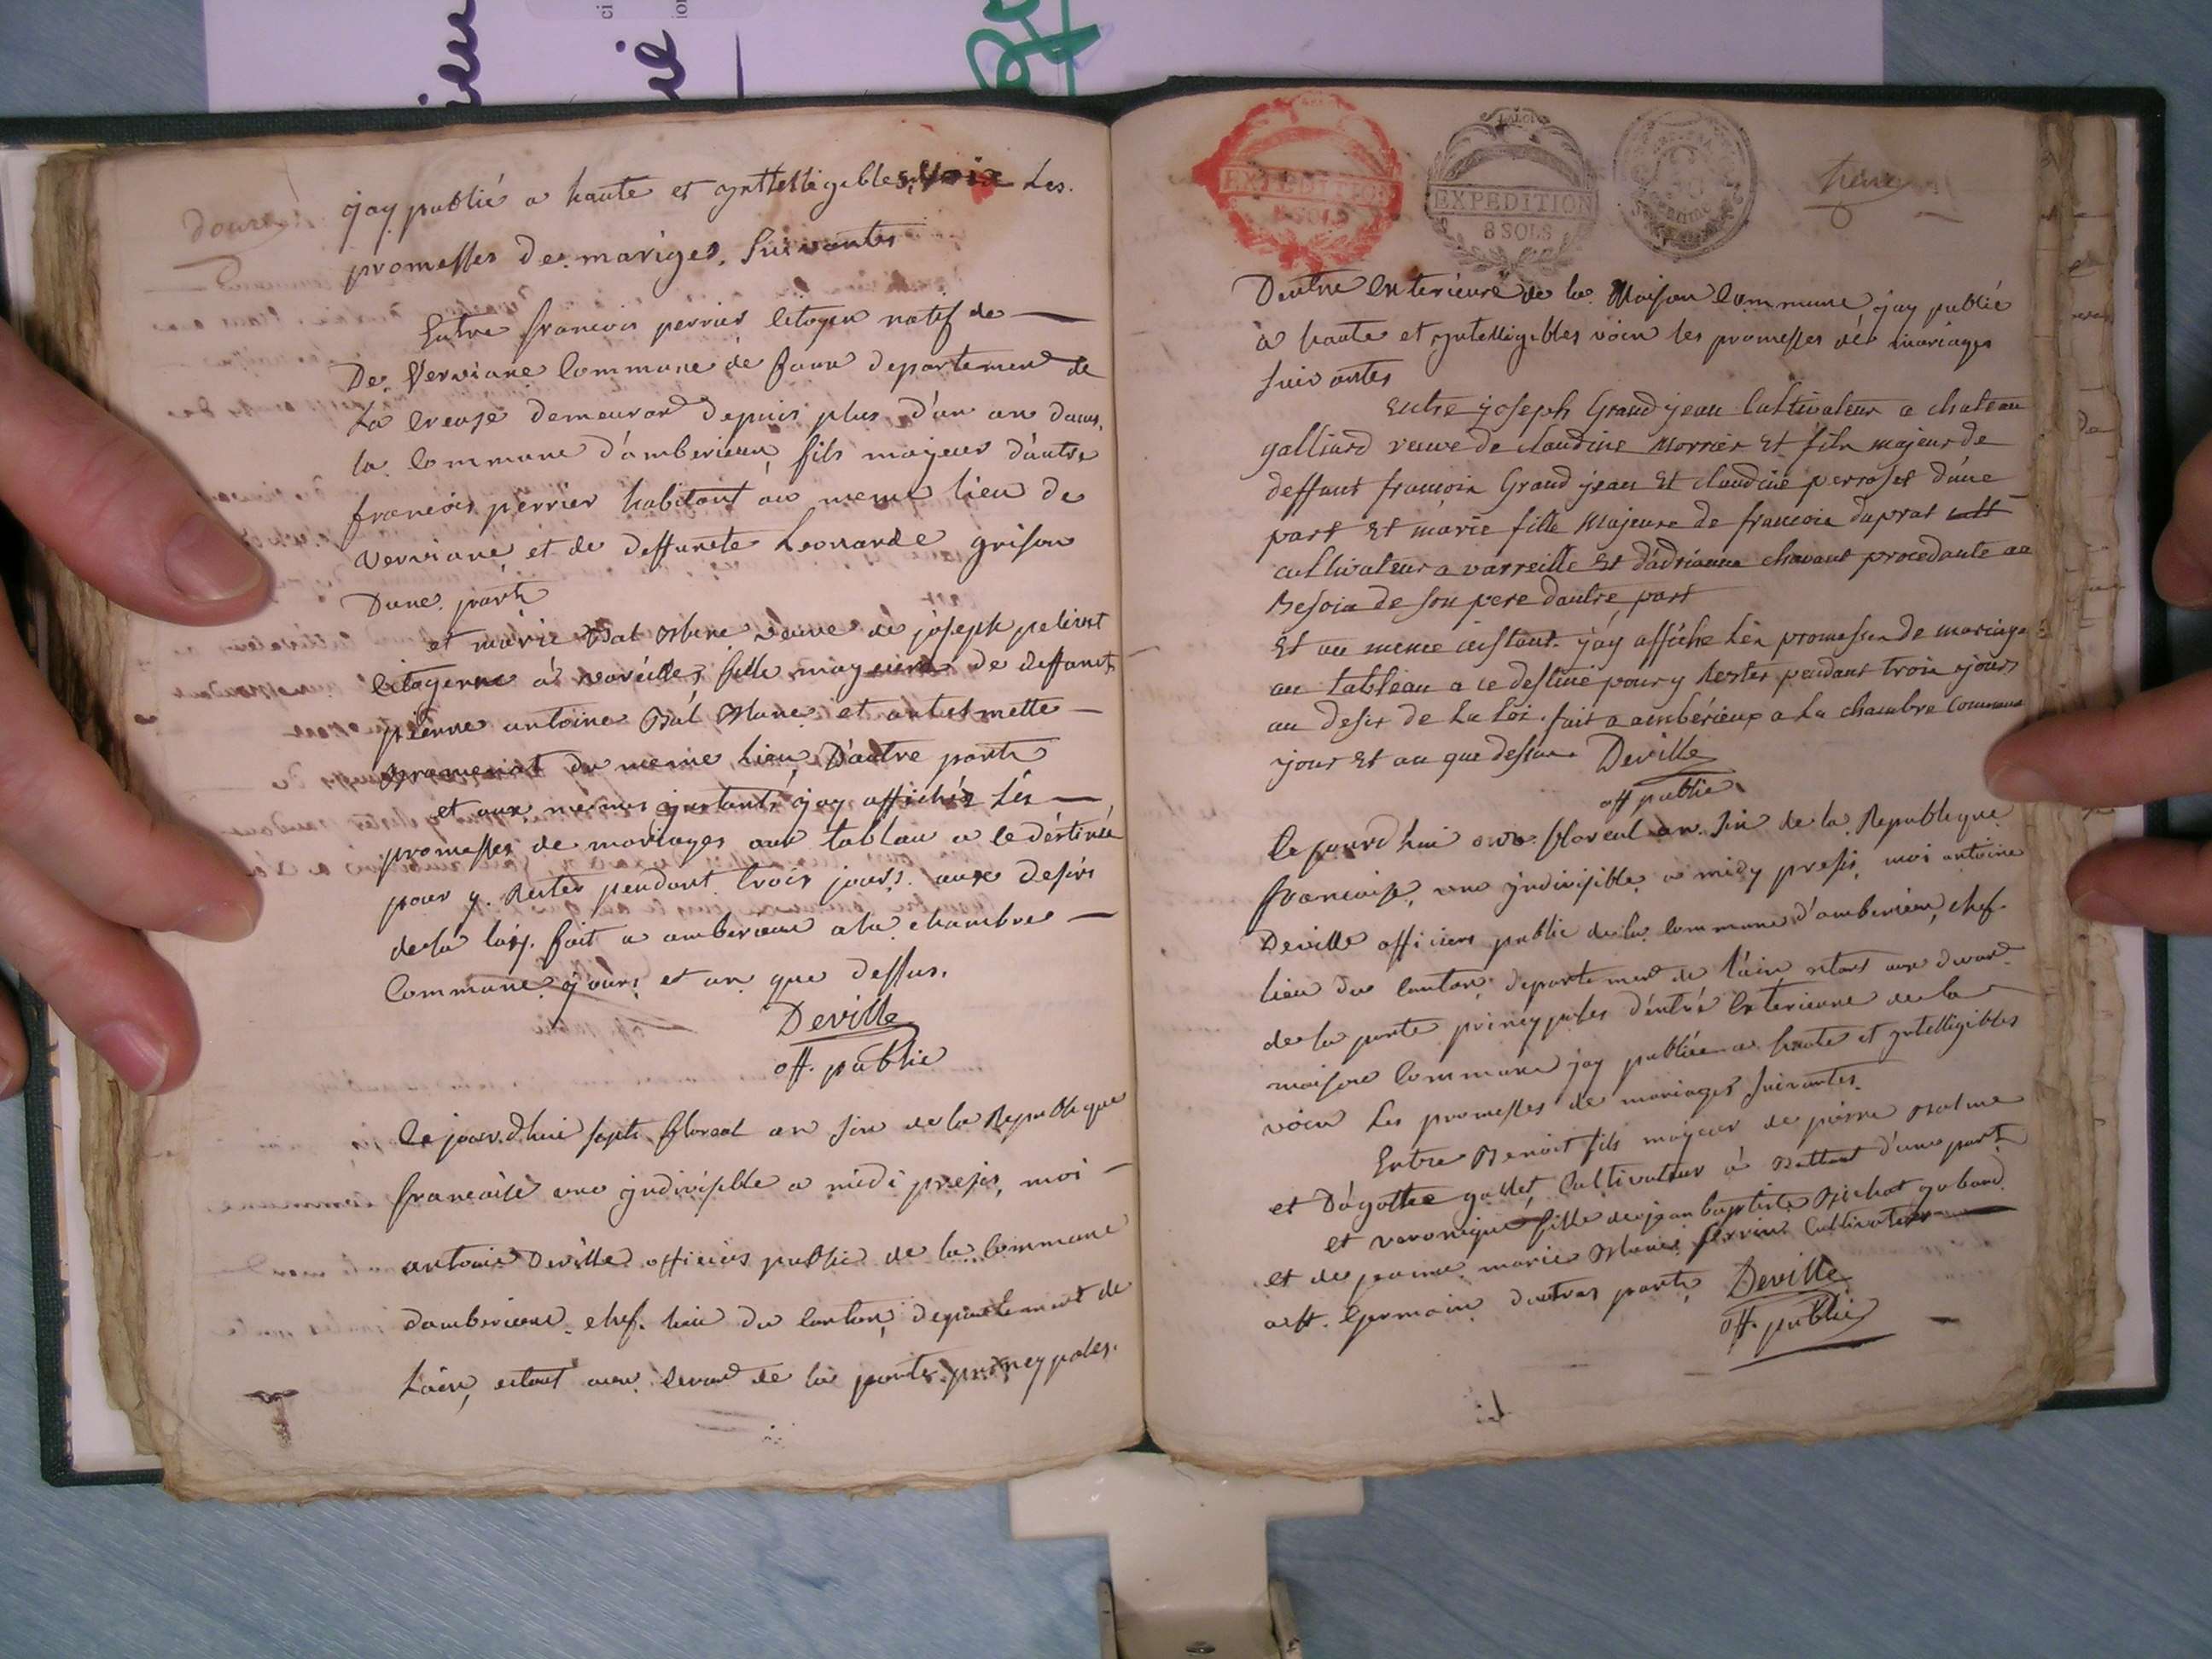 douze
jay publié a haute et yntelligibles voix Les.
promesses de mariges. Suivantes
Entre francois perrier citoyen natif de
De Verviane Commune de faux departement de
La Creuse demeurand depuis plus d'un an dans
la Commune d'amberieux, fils mayeur d'autre
francois perrier habitant au meme lieu de
Verviane, et de deffuncte Leonarde grison
Dune part
et marie veuve de joseph pelivet
Citoyenne à varéilles fille mayeure de deffunct
pierre antoine et
du meme lieu D'autre parts
et aux memes ynstants jay affichés Lés
promesses de mariages aux tablau a ce déstinée
pour y. Rester pendant trois jours. aux desirs
de la loix. fait a amberieux a la chambre
Commune jours et an que dessus.
Deville
off. public
Ce jourdhui sept floreal an six de la Republique
francaise une yndivisible a midi presis, moi
antoine Deville officier public de la Commune
damberieux. chef. lieu du Canton, departement de
Lain, etant aux devand de la porte. princypales.
EXPEDITION
8 SOLS
EXPEDITION
8 SOLS
treize
Dentre Exterieure de la Maison Commune, jay publié
à haute et yntelligibles voix les promesses dés mariages
Suivantes
Entre joseph Grand jean Cultivateur a chateau
galliard veuve de claudine Morrier Et fils majeur de
deffunt francois Grand jean Et claudine perroset d'une
part Et marie fille Majeure de francois duprat cult
cultivateur a varreille Et d'adrianne chavant procedante au
Besoin de son pere dautre part
Et au meme instant jay affiche Les promesses de mariage
au tableau a ce destiné pour y Rester pendant trois jours
au desir de La Loi. fait a ambérieux a La chambre Commune
jour Et an que dessus. Deville
off public
Ce jourd hui onze floreal an. six de la Republique
francaise, une yndivisible, a midy presis, moi antoine
Deville officiers public de la Commune d'amberieux, chef.
lieu du Canton, departement de l'ain etant aux devand
de la porte princypales déntré Exterieure de la
maison Commune jay publiée a haute et yntelligibles
voix Les promesses de mariages Suivantes.
Entre Benoit fils mayeur de pierre Balme
et D'agathe gallet Cultivateur à Bettant d'une part
et veronique fille de jean baptiste Bichat gaband
et de jeanne marie perrin Cultivateur
a st. Germain dautres parts Deville
off. public